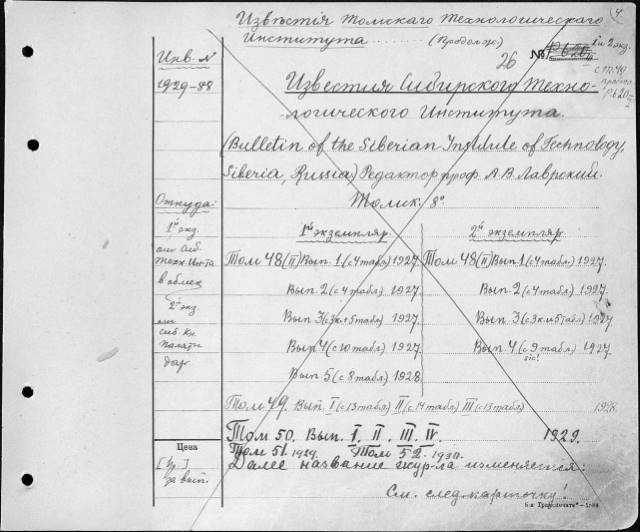 4.
Извѣстія Томскаго Технологическаго
Института ........ (Продолж.)
1 и 2 экз.
26 №
Инв. №
1929-88
с т. 49
Р620
Известия Сибирского Техно-
-логического Института.
(Bulletin of the Siberian Institute of Technology,
Siberia, Russia) Редактор проф. А.В. Лаврский.
Томск. 8°
Откуда:
1й экз.
от Сиб.
Техн. Инст-та
в обмен
2й экз.
от
Сиб. Кн.
Палаты
дар
1й экземпляр. 2й экземпляр.
Том 48 (II) Вып. 1 (с 4 табл) 1927. Том 48 (II) Вып 1 (с 4 табл) 1927.
Вып 2 (с 4 табл) 1927. Вып 2 (с 4 табл) 1927.
Вып 3 (с 3 к. + 5 табл) 1927. Вып 3 (с 3 к и 5 табл) 1927
Вып 4 (с 10 табл) 1927. Вып 4 (с 9 табл) 1927.
sic!
Вып 5 (с 8 табл) 1928
Том 49. Вып. I (с 13 табл) II (с 14 табл) III (с 13 табл) 1928.
Том 50. Вып. I. II. III. IV. 1929.
Том 51. 1929. Том 52. 1930.
Далее название жур-ла изменяется:
См. след. карточку!
Цена
за вып.